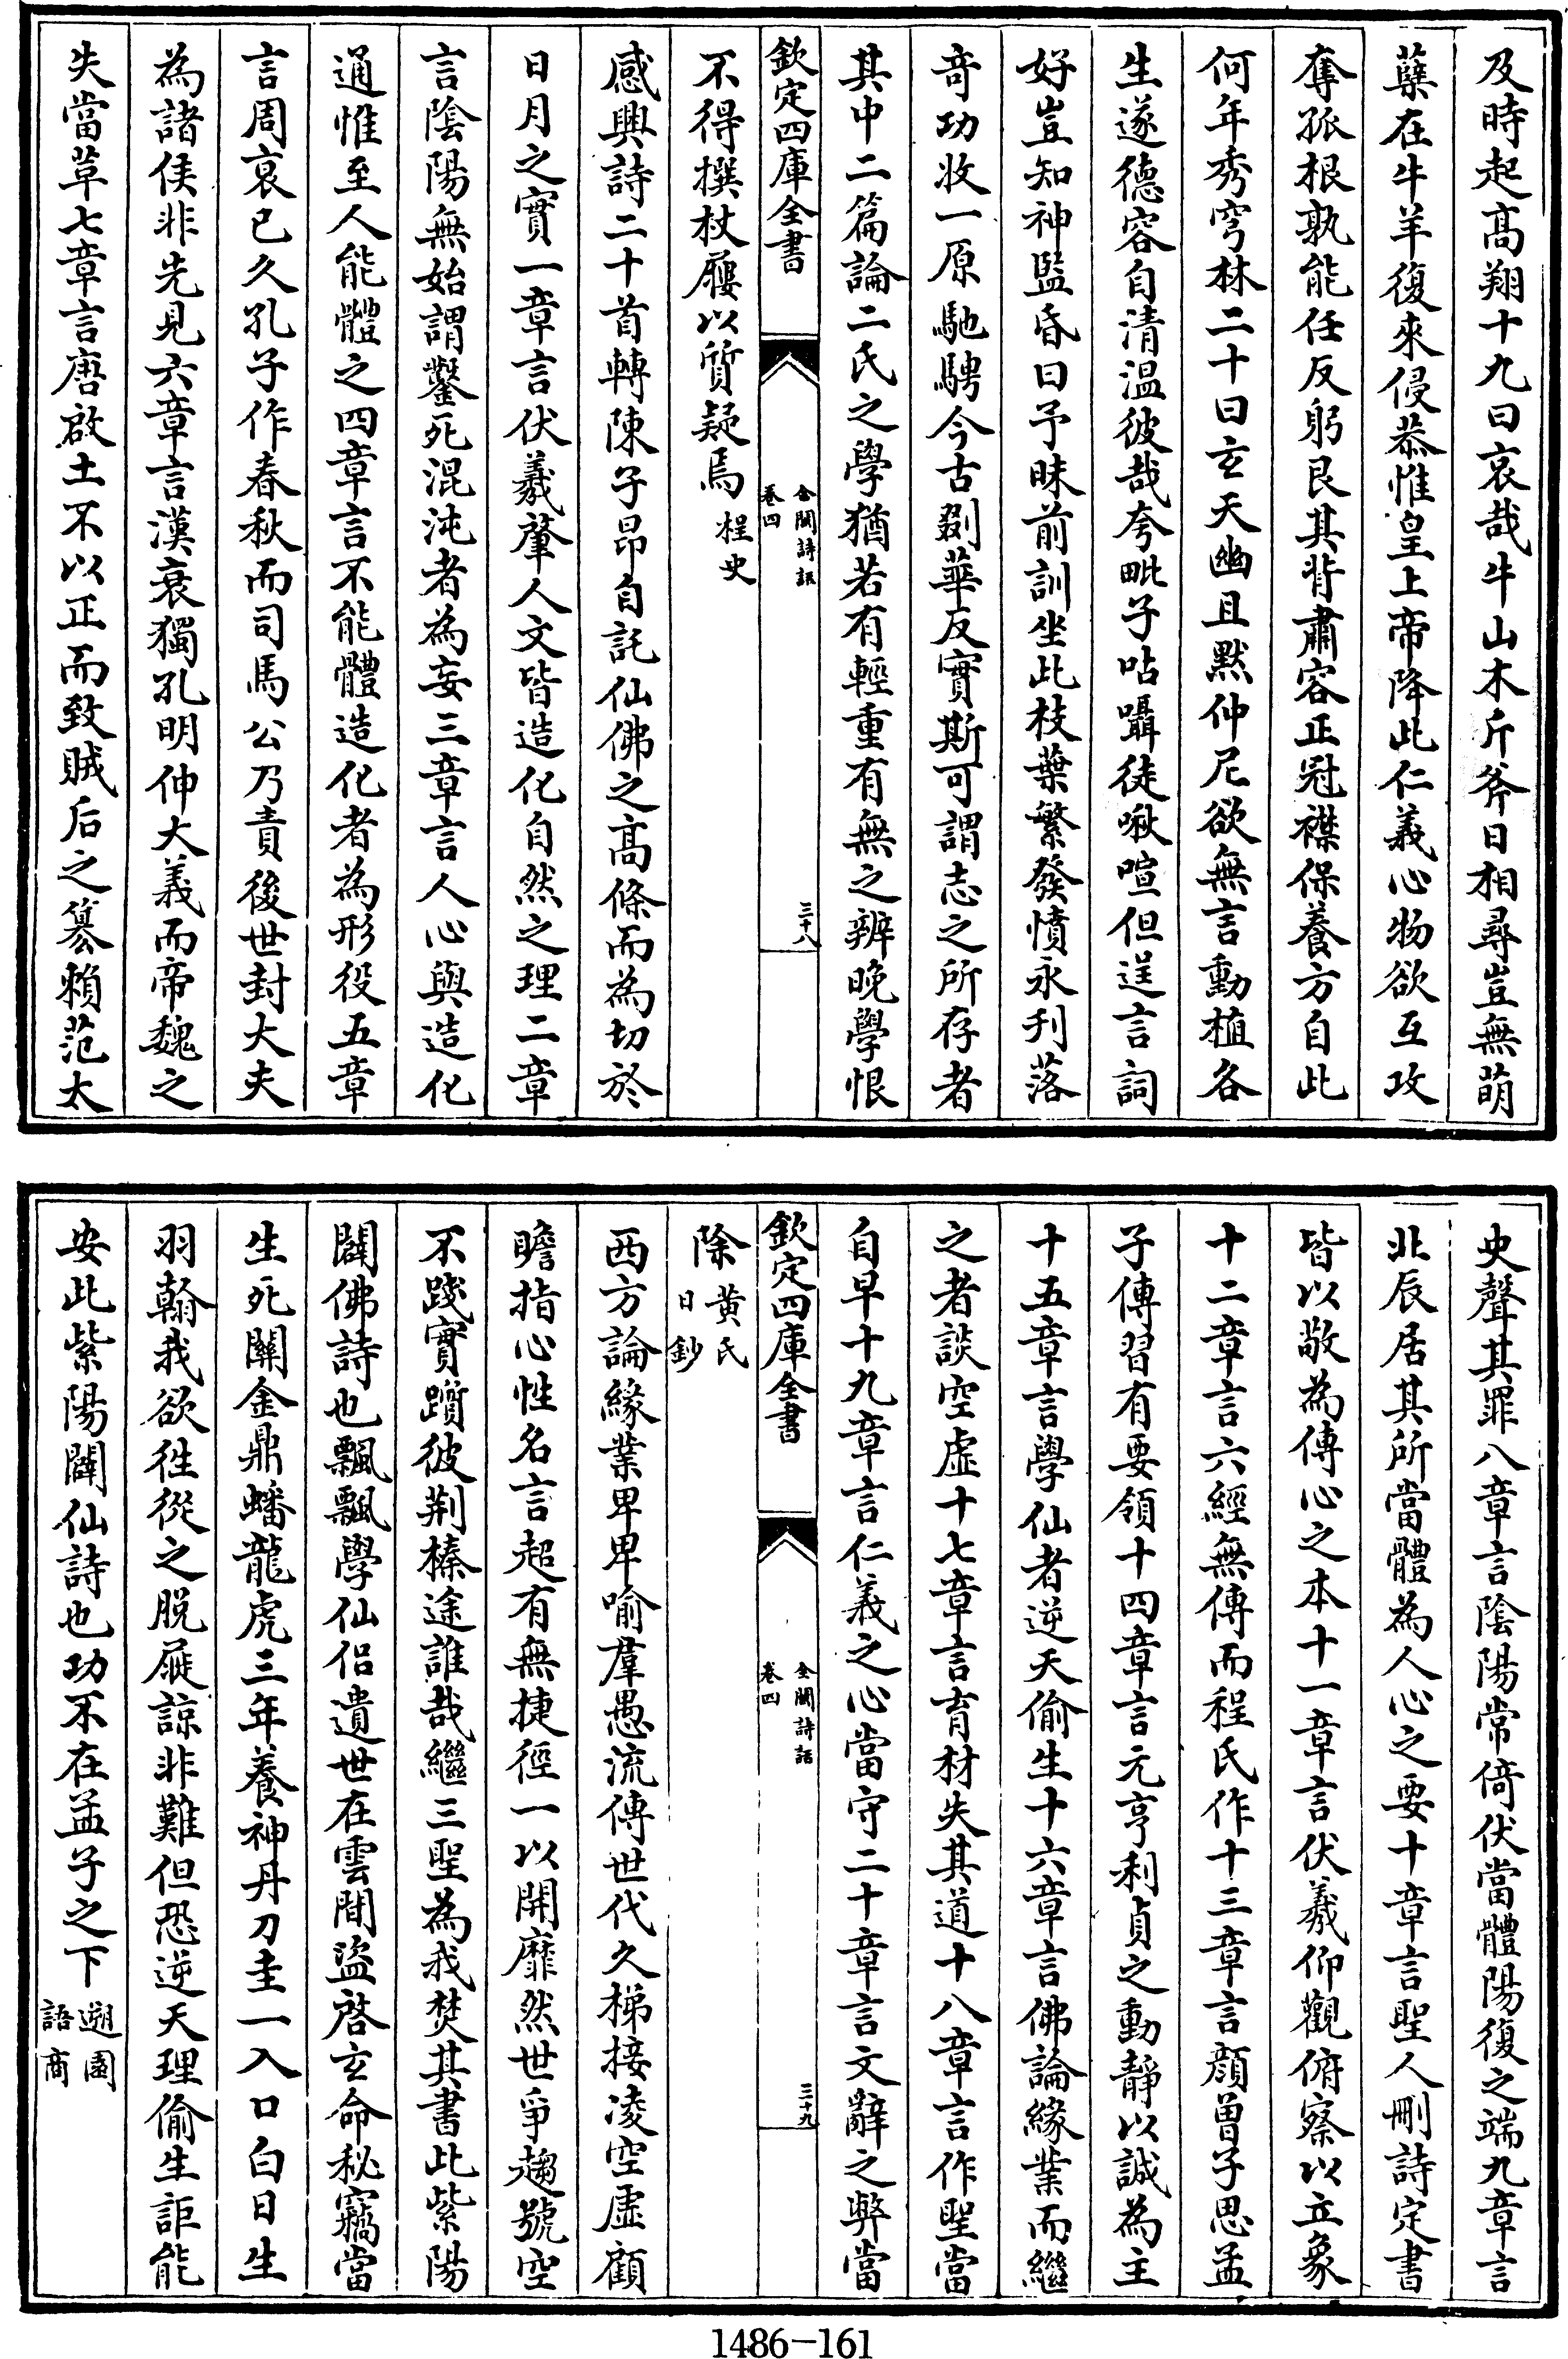 及時起髙翔十九曰哀哉牛山木斤斧日相尋豈無萌
蘖在牛羊復來侵恭惟皇上帝降此仁義心物欲互攻
奪孤根孰能任反躬艮其背肅容正冠襟保養方自此
何年秀穹林二十曰玄天幽且黙仲尼欲無言動植各
生遂德容自清温彼哉夸毗子呫囁徒啾喧但逞言詞
好豈知神監昏曰予昧前訓坐此枝葉繁發憤永刋落
竒功收一原馳騁今古剟華反實斯可謂志之所存者
其中二篇論二氏之學猶若有輕重有無之辨晚學恨
欽定四庫全書
全閩詩話
卷四
三十八
不得撰杖屨以質疑焉桯史
感興詩二十首轉陳子昂自託仙佛之髙條而為切於
日月之實一章言伏羲肇人文皆造化自然之理二章
言陰陽無始謂鑿死混沌者為妄三章言人心與造化
通惟至人能體之四章言不能體造化者為形役五章
言周衰已久孔子作春秋而司馬公乃責後世封大夫
為諸侯非先見六章言漢衰獨孔明伸大義而帝魏之
失當草七章言唐啟土不以正而致賊后之簒賴范太
史聲其罪八章言陰陽常倚伏當體陽復之端九章言
北辰居其所當體為人心之要十章言聖人刪詩定書
皆以敬為傳心之本十一章言伏羲仰觀俯察以立象
十二章言六經無傳而程氏作十三章言顔曽子思孟
子傳習有要領十四章言元亨利貞之動靜以誠為主
十五章言學仙者逆天偷生十六章言佛論緣業而繼
之者談空虛十七章言育材失其道十八章言作聖當
自早十九章言仁義之心當守二十章言文辭之弊當
欽定四庫全書
全閩詩話
卷四
三十九
除黃氏
日鈔
西方論緣業卑卑喻羣愚流傳世代久梯接凌空虛顧
瞻指心性名言超有無捷徑一以開靡然世爭趨號空
不踐實躓彼荆榛途誰哉繼三聖為我焚其書此紫陽
闢佛詩也飄飄學仙侶遺世在雲間盜啓玄命秘竊當
生死關金鼎蟠龍虎三年養神丹刀圭一入口白日生
羽翰我欲往從之脫屣諒非難但恐逆天理偷生詎能
安此紫陽闢仙詩也功不在孟子之下遡園
語商
1486-161